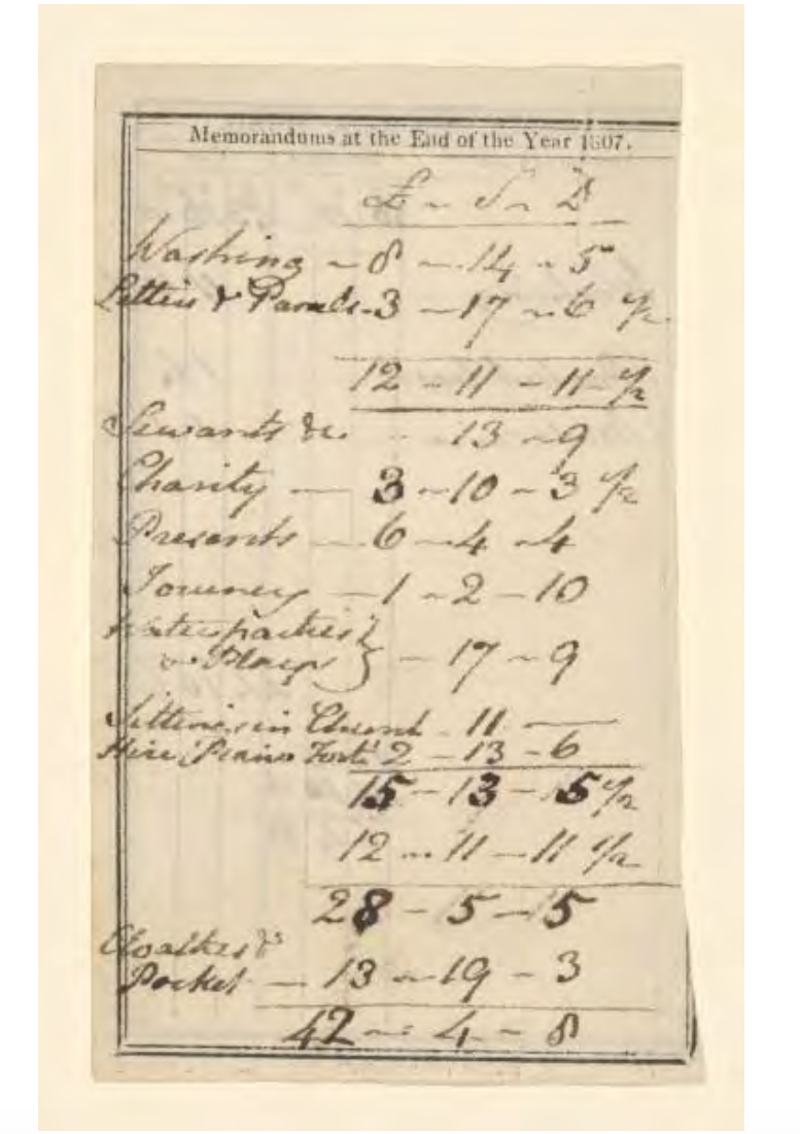 Memorandums at the End of the Year 1807.
£ ~ S ~ D
Washing ~ 8 ~ 14 ~ 5
Letters & Parcels - 3 ~ 17 ~ 6 ½
12 - 11 - 11 ½
Servants &c. - 13 ~ 9
Charity — 3 - 10 - 3 ½
Presents — 6 - 4 - 4
Journey — 1 - 2 - 10
Waterparties }
& Plays } - 17 ~ 9
Sittings in Church - 11 —
Hire Piano Forte 2 - 13 - 6
15 - 13 - 5 ½
12 - 11 - 11 ½
28 - 5 - 5
Cloathes &
Pocket — 13 - 19 - 3
42 - 4 - 8